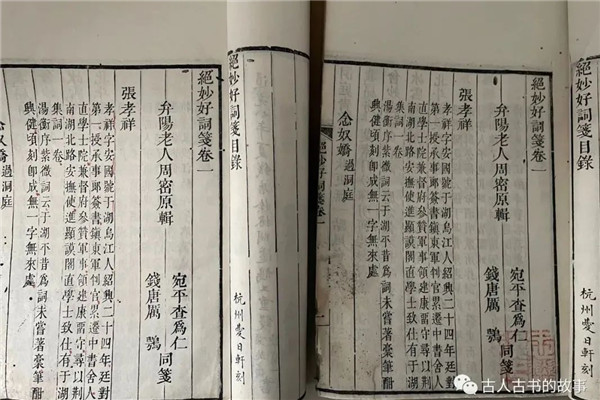 絕妙好詞箋目錄
杭州愛日軒刻
絕妙好詞箋卷一
弁陽老人周密原輯
宛平查爲仁
錢唐厲 鶚 同箋
張孝祥
孝祥字安國號于湖烏江人紹興二十四年廷對
第一授承事郎簽書鎮東軍判官累遷中書舍人
直學士院兼督府參贊軍事領建康畱守尋以荆
南湖北路安撫使進顯謨閣直學士致仕有于湖
集詞一卷
湯衡序紫微詞云于湖平昔爲詞未嘗著槀筆酣
興健頃刻即成無一字無來處
念奴嬌 過洞庭
絕妙好詞箋卷一
絕妙好詞箋目錄
杭州愛日軒刻
絕妙好詞箋卷一
弁陽老人周密原輯
宛平查爲仁
錢唐厲 鶚 同箋
張孝祥
孝祥字安國號于湖烏江人紹興二十四年廷對
第一授承事郎簽書鎮東軍判官累遷中書舍人
直學士院兼督府參贊軍事領建康畱守尋以荆
南湖北路安撫使進顯謨閣直學士致仕有于湖
集詞一卷
湯衡序紫微詞云于湖平昔爲詞未嘗著槀筆酣
興健頃刻即成無一字無來處
念奴嬌 過洞庭
古人古书的故事